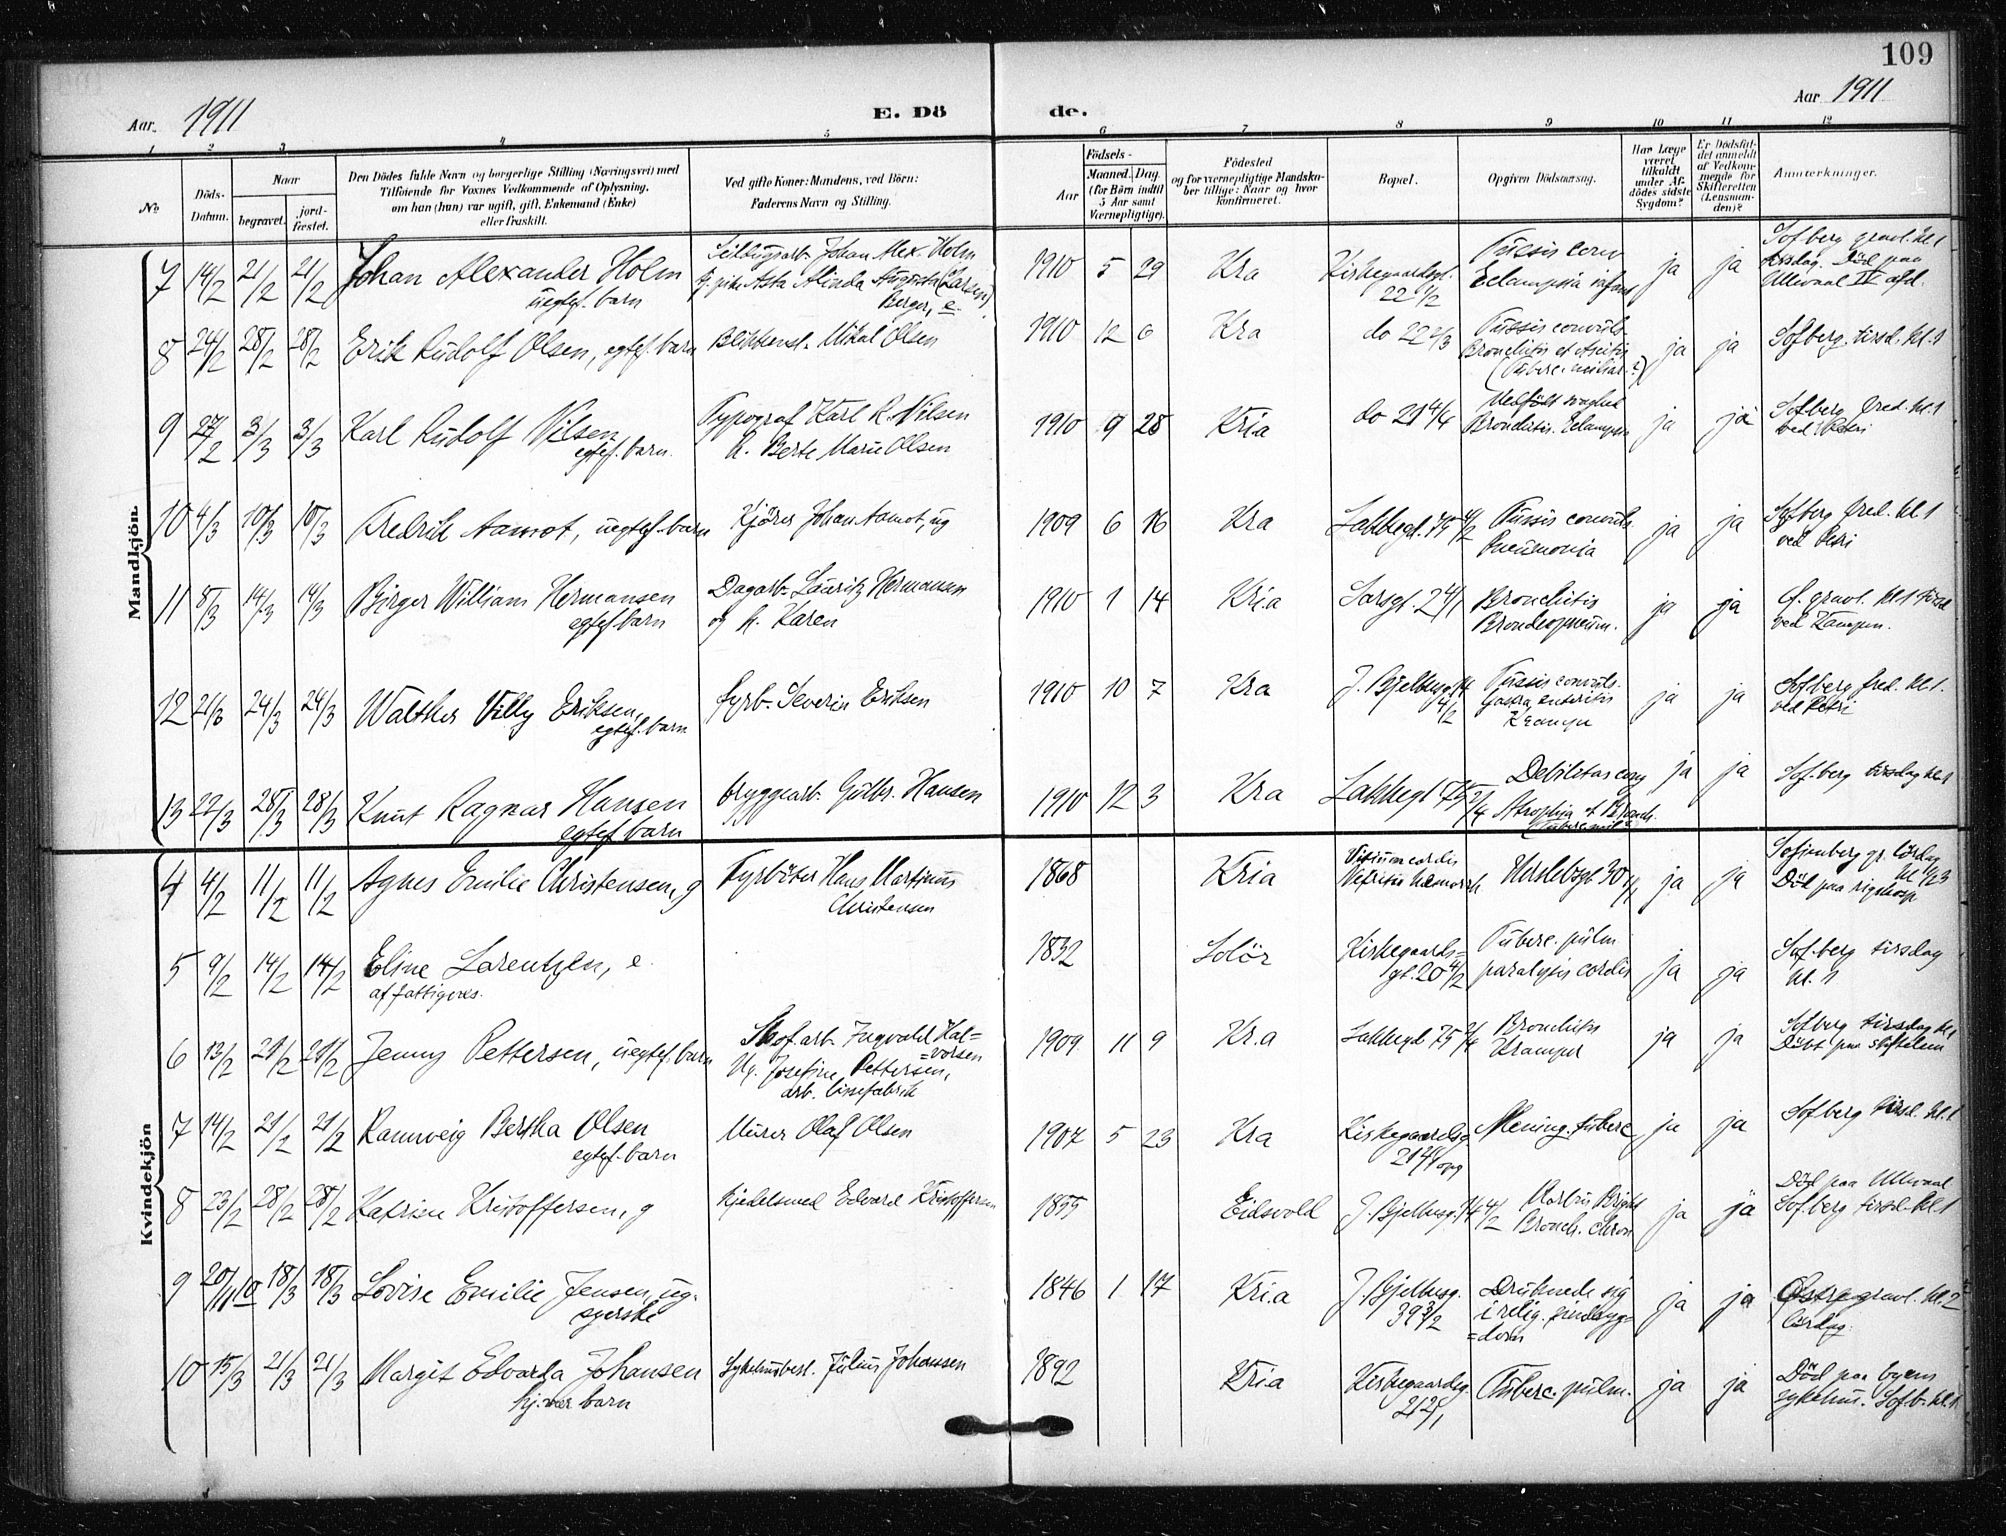 109
Aar 1911
E. Dö
de.
Aar 1911
1 2 3 4 5 6 7 8 9 10 11 12
No
Döds-
Datum.
Naar
begravet.
jord-
fæstet.
Den Dödes fulde Navn og borgerlige Stilling (Næringsvei) med
Tilföiende for Voxnes Vedkommende af Oplysning,
om han (hun) var ugift, gift, Enkemand (Enke)
eller fraskilt.
Ved gifte Koner: Mandens, ved Börn:
Faderens Navn og Stilling.
Födsels-
Aar
Maaned. Dag.
(for Börn indtil
5 Aar samt
Værnepligtige).
Födested
og for værnepligtige Mandska-
ber tillige: Naar og hvor
konfirmeret.
Bopæl.
Opgiven Dödsaarsag.
Har Læge
været
tilkaldt
under Af-
dödes sidste
Sygdom?
Er Dödsfal-
det anmeldt
af Vedkom-
mende for
Skifteretten
(Lensman-
den)?
Anmærkninger.
Mandkjön.
7 14/2 21/2 21/2 Johan Alexander Holm
uegtef. barn
Johan Alex. Holm
Asta Alinda Augusta (Larsen)
Berger, e.
1910 5 29 Kra Kirkegaardsgt.
22 1/2
Tussis conv
Eclampsia infant
ja ja
Sofberg gravl. kl. 1
tirsdag. Död paa
Ullevaal IV afd.
8 24/2 28/2 28/2 Erik Rudolf Olsen, egtef. barn
Blikkensl. Mikal Olsen
1910 12 6 Kra do 22 2/3
Tussis convuls.
Bronchitis et Ascitis
(Tuberc. miliar.?)
ja ja Sofberg. tirsd. kl. 1
9 27/2 3/3 3/3 Karl Rudolf Nilsen
egtef. barn.
Typograf Karl R. Nilsen
h. Berte Marie Olsen
1910 9 28 Kria do 21 4/4
Medfödt svaghed
Bronchitis. Eclampsi
ja ja
Sofberg fred. kl. 1
ved Petri
10 4/3 10/3 10/3 Fredrik Aamot, uegtef. barn
Kjörer Johan Aamot, ug
1909 6 16 Kra Lakkegt. 75 4/2
Tussis convuls
Pneumonia
ja ja
Sofberg fred. kl. 1
ved Petri
11 8/3 14/3 14/3 Birger William Hermansen
egtef. barn
Dagarb. Lauritz Hermansen
og h. Karen
1910 1 14 Kria Sarsgt. 24/1
Bronchitis
Bronchopneum.
ja ja
gravl. kl. 1 tirsd
ved Kampen.
12 21/3 24/3 24/3 Walther Villy Eriksen,
egtef. barn
fyrb. Severin Eriksen
1910 10 7 Kra J. Bjelkesg. 14
4/2
Tussis convuls.
Gastro enteritis
Krampe
ja ja
Sofberg fred. kl. 1.
ved Petri
13 22/3 28/3 28/3 Knut Ragnar Hansen
egtef. barn
bryggearb. Gulbr. Hansen
1910 12 3 Kra Lakkegt 75 2/4
Debilitas cong
Atrophia et Bronch.
ja ja Sof.berg tirsdag kl. 1
Kvindekjön
4 4/2 11/2 11/2 Agnes Emilie Christensen, g
Fyrböter Hans Martinus
Christensen
1868 Kria
Vitium cordis
Nefritis hæmorrh
Herslebsgt 30
ja ja
Sofienberg gr. lördag
kl 1/2 3
Död paa rigshosp
5 9/2 14/2 14/2 Eline Larentzen, e
af fattigves.
1832 Solör
Kirkegaards=
gt. 20 4/2
Tuberc. pulm
paralysis cordis
ja ja
Sof.berg tirsdag
kl. 1
6 13/2 21/2 21/2 Jenny Pettersen, uegtef. barn
Skof.arb. Ingvald Hal=
=vorsen
Ug. Josefine Pettersen,
arb. lissefabrik
1909 11 9 Kr.a Lakkegt 75 2/4
Bronchitis
Kramper
ja ja
Sofberg tirsdag kl 1
Döbt paa stiftelsen
7 14/2 21/2 21/2 Rannveig Bertha Olsen
egtef. barn
Murer Olaf Olsen
1907 5 23 Kra
Kirkegaardsg
21 2/1 opg
Mening. tuberc
ja ja Sofberg tirsd. kl. 1
8 23/2 28/2 28/2 Katrine Kristoffersen, g
Kjedelsmed Edvard Kristoffersen
1855 Eidsvold J. Bjelkesg. 14 4/2
Morbus Bright
Bronch. chron
ja ja
Död paa Ullevaal
Sof.berg tirsd. kl. 1
9 20/11 10 18/3 18/3 Lovise Emilie Jensen, ug.
syerske
1846 1 17 Kria
J. Bjelkesg.
39 3/2
Druknede sig
i relig. sindssyg=
=dom
ja ja
Östre gravl. kl. 2
lördag.
10 15/3 21/3 21/3 Margit Edvarda Johansen
hj.vær barn
Sykehusbest. Julius Johansen
1892 Kria
Kirkegaardsg.
21 2/1
Tuberc. pulm.
ja ja
Död paa byens
sykehus. Sofb. kl. 1